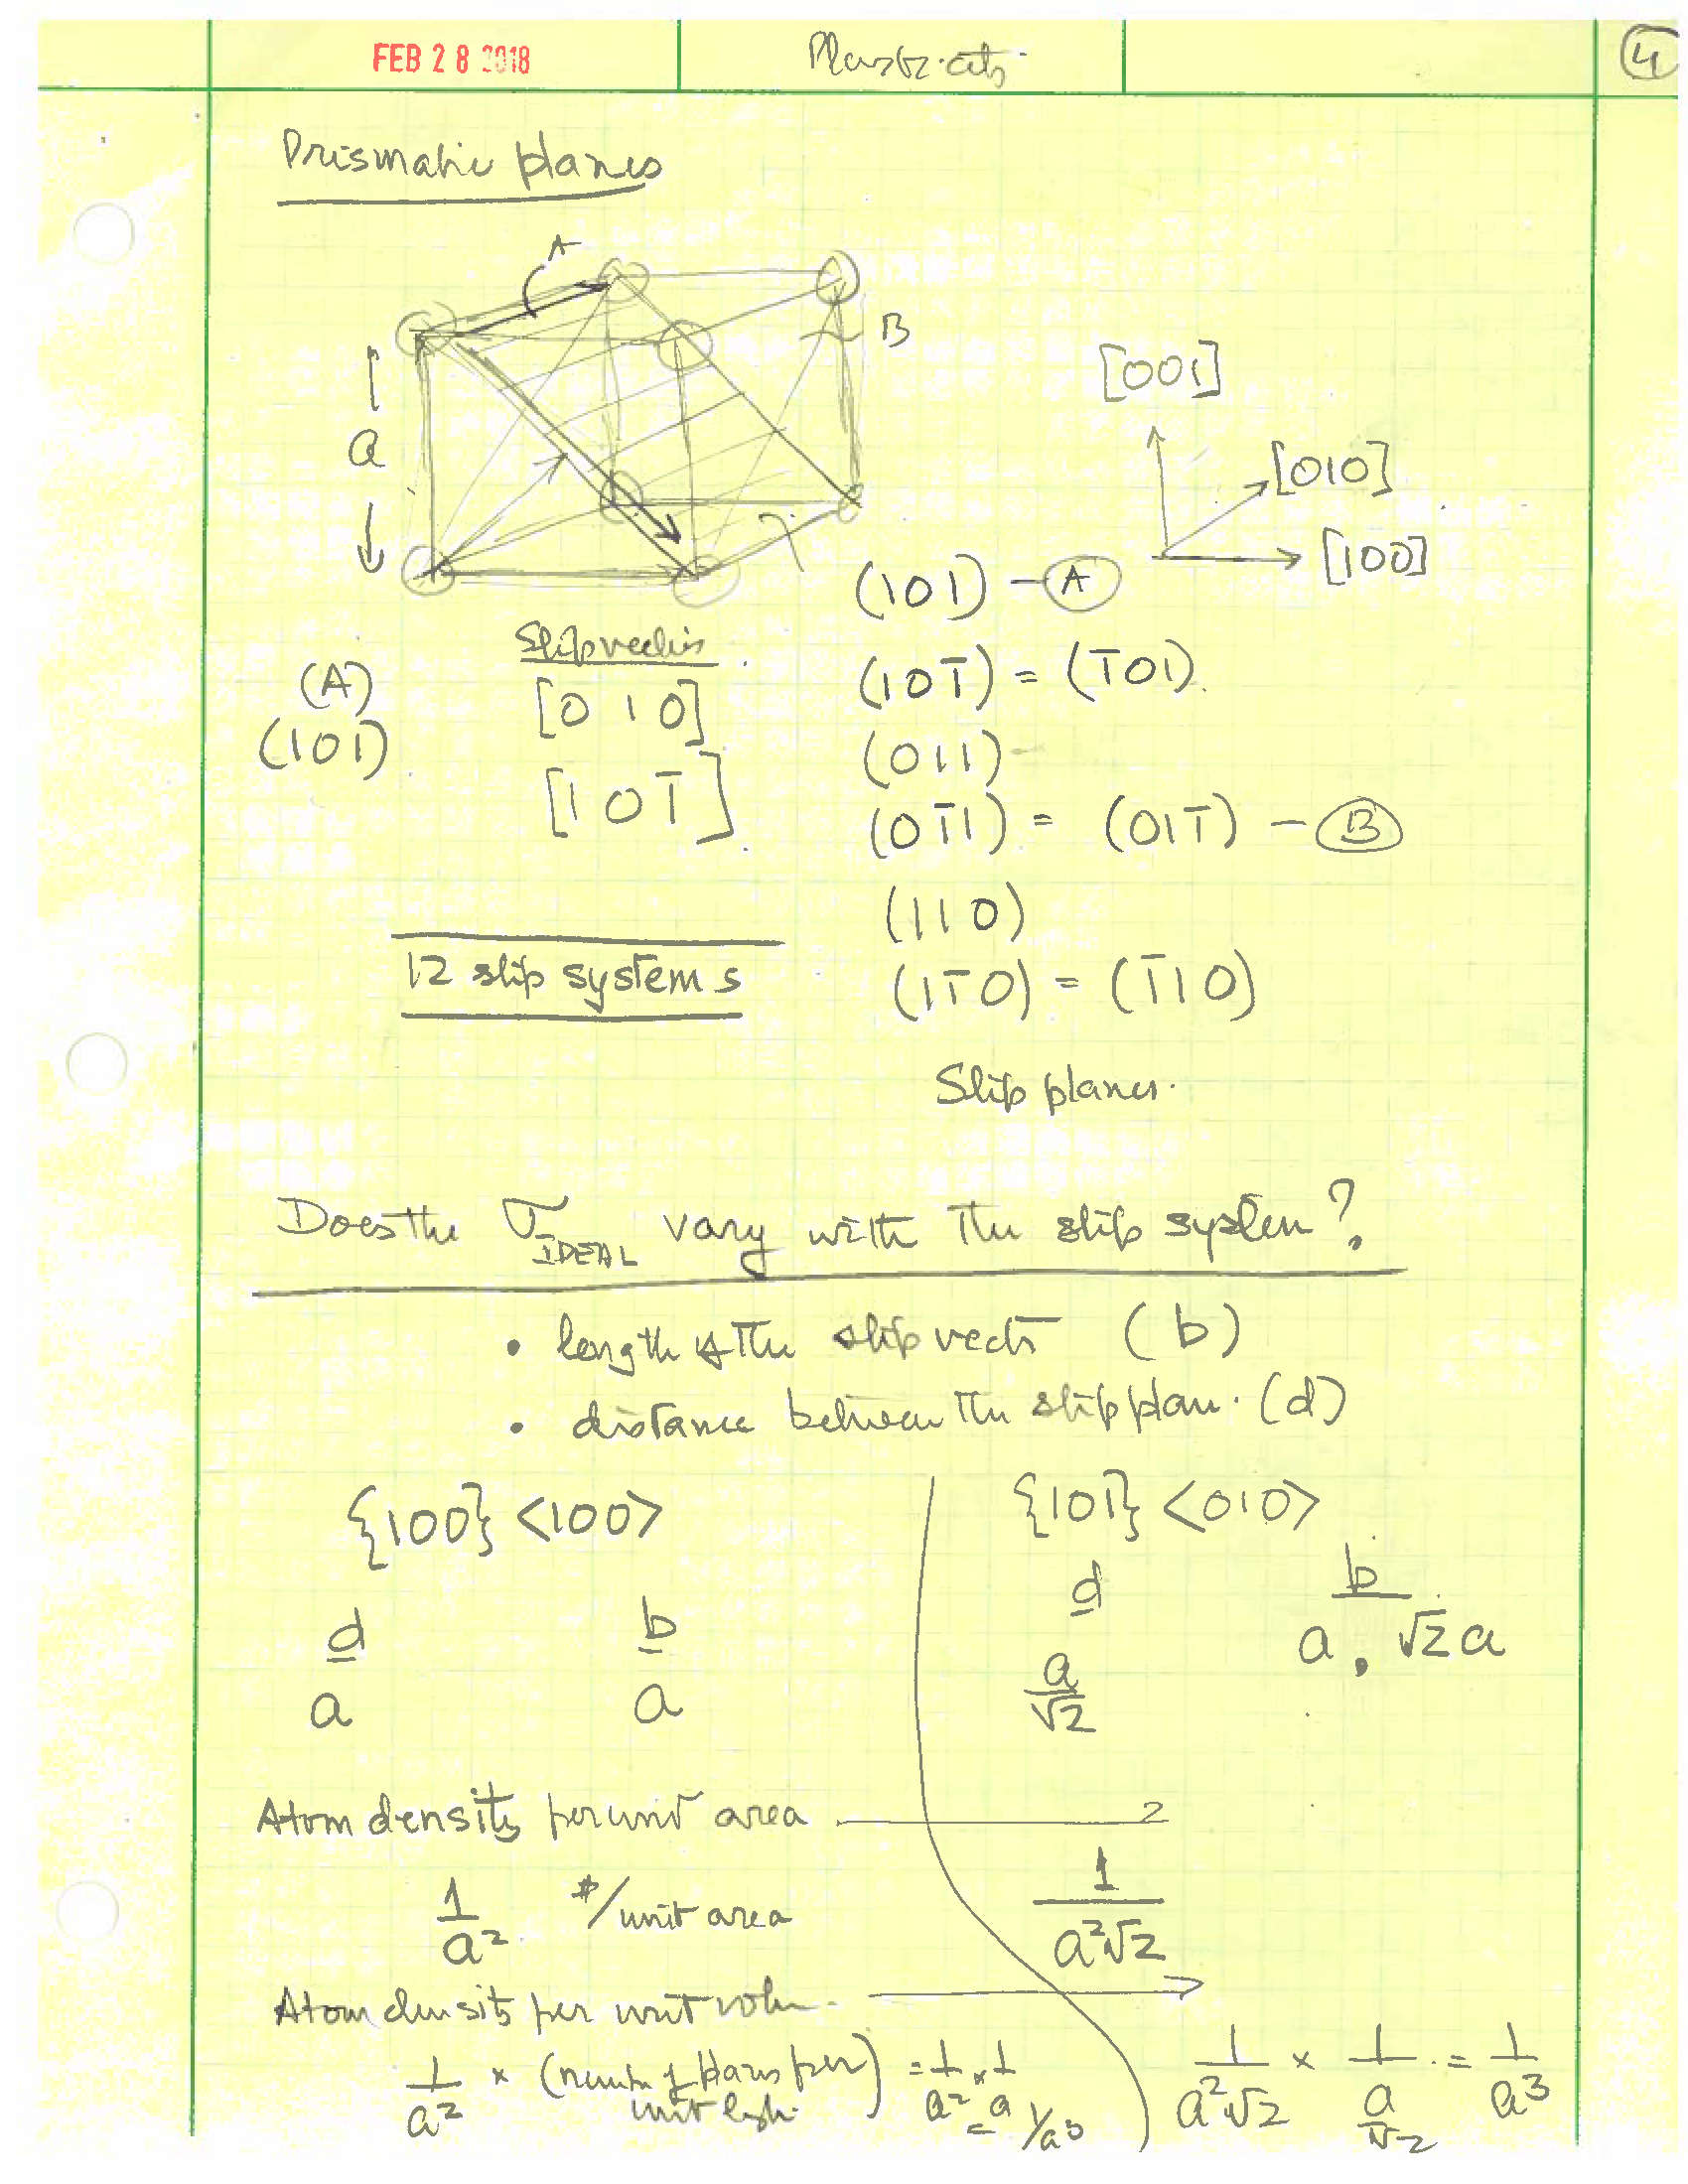 FEB 28 2018
Plasticity
4
Prismatic planes
A
B
a
[001]
[010]
[100]
(101) - A
Slip vectors
(A)
(101)
[010]
[10T̅]
(101̅) = (1̅01)
(011)
(01̅1) = (011̅) - B
(110)
(11̅0) = (1̅10)
12 slip systems
Slip planes.
Does the τ IDEAL vary with the slip system?
• length of the slip vector (b)
• distance between the slip plane. (d)
{100} <100>
{101} <010>
d b
a a
d b
a/√2 a, √2a
Atom density per unit area
2
1/a² #/unit area
1/a²√2
Atom density per unit volm.
1/a² × (number of planes per unit length) = 1/a² × 1/a = 1/a³
1/a²√2 × 1/(a/√2) = 1/a³